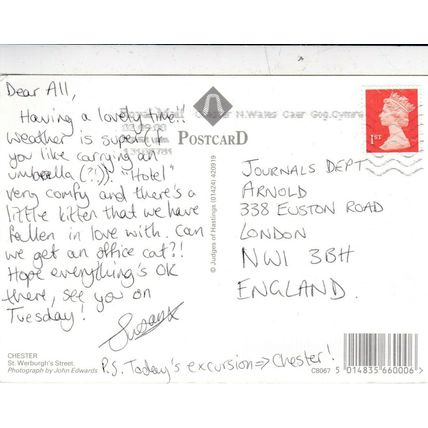 Dear All,
Having a lovely time!!
Weather is super (if
you like carrying an
umbrella (?!)). "Hotel"
very comfy and there's a
little kitten that we have
fallen in love with. Can
we get an office cat?!
Hope everything's OK
there, see you on
Tuesday!
Susan x
P.S. Today's excursion => Chester!
CHESTER
St. Werburgh's Street.
Photograph by John Edwards
Chester N.Wales Caer Gog.Cymru
POSTCARD
© Judges of Hastings (01424) 420919
1ST
JOURNALS DEPT
ARNOLD
338 EUSTON ROAD
LONDON
NW1 3BH
ENGLAND.
C8067
5 014835 660006 >